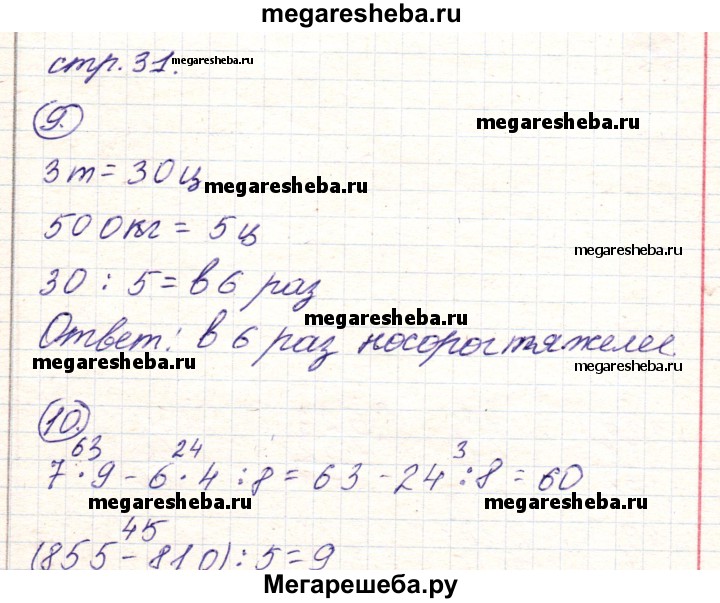 megaresheba.ru
стр. 31. megaresheba.ru
9. megaresheba.ru
3т = 30ц megaresheba.ru
500кг = 5ц megaresheba.ru
30 : 5 = в 6 раз
megaresheba.ru
Ответ: в 6 раз носорог тяжелее.
megaresheba.ru megaresheba.ru
10.
63 24 3
7 · 9 - 6 · 4 : 8 = 63 - 24 : 8 = 60
megaresheba.ru megaresheba.ru
45
(855 - 810) : 5 = 9
Мегарешеба.ру